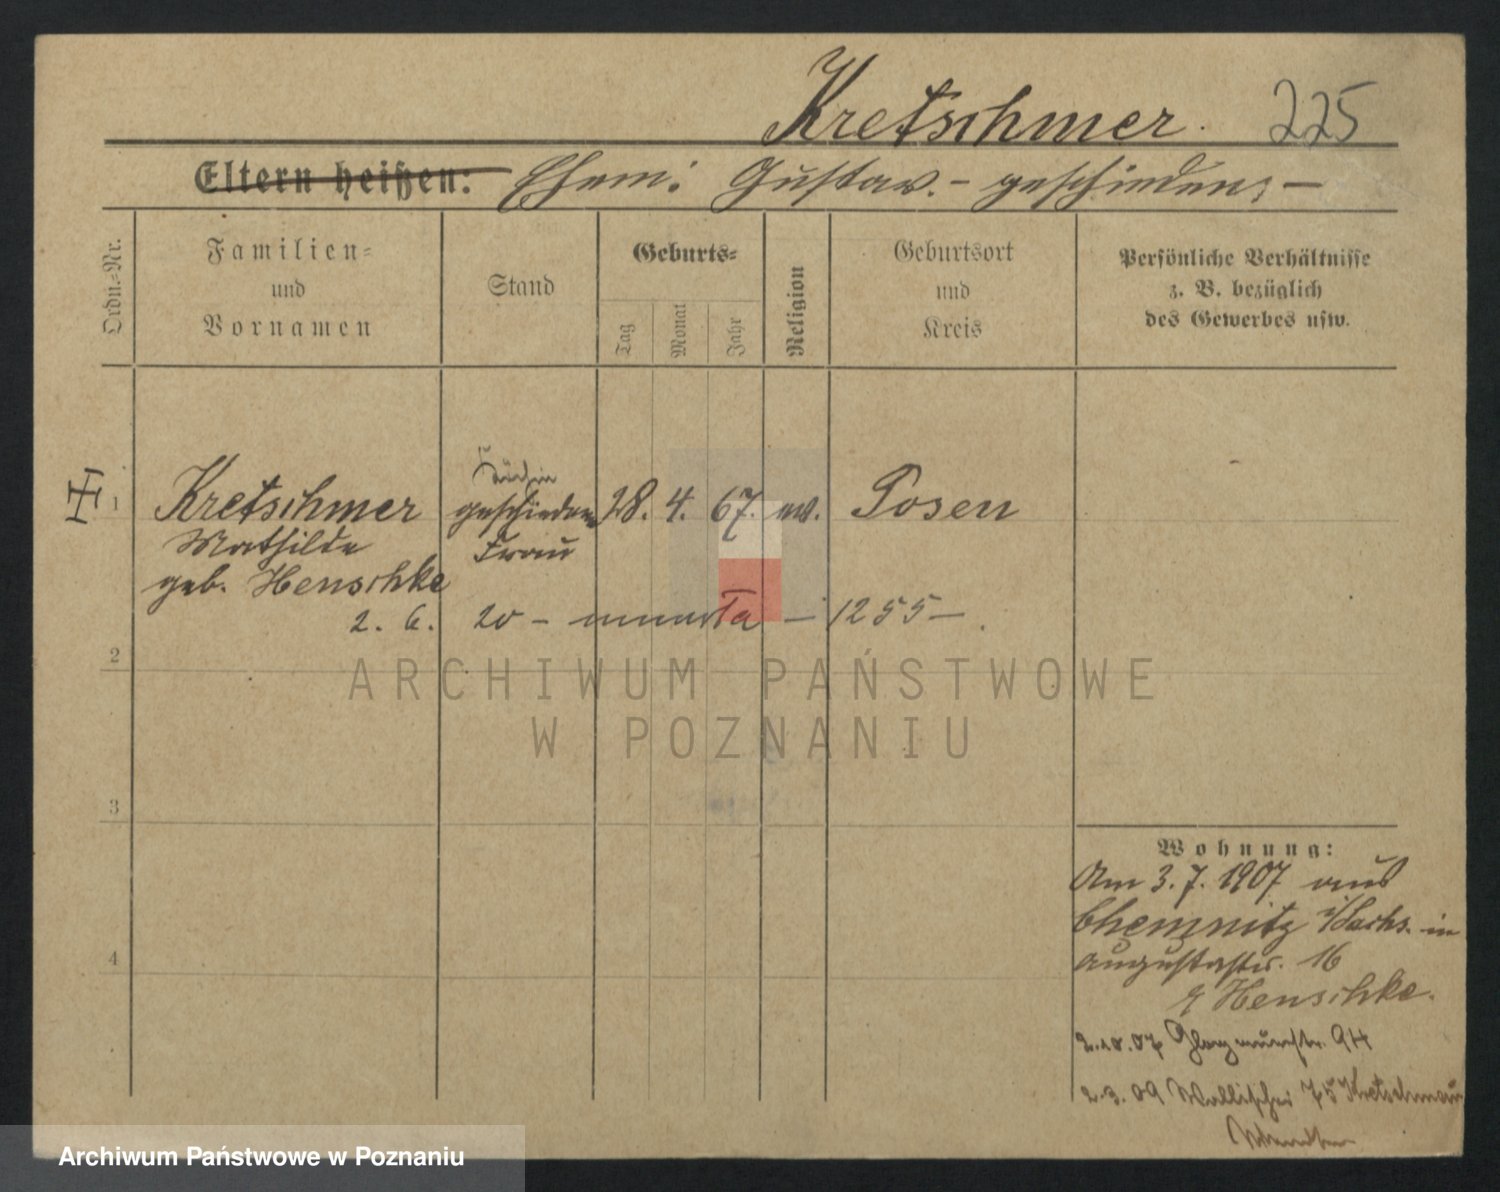 Kretschmer. 225
Eltern heißen: Ehem: Gustav. - geschieden, -
Ordn.-Nr.
Familien-
und
Vornamen
Stand
Geburts-
Tag
Monat
Jahr
Religion
Geburtsort
und
Kreis
Persönliche Verhältnisse
z. B. bezüglich
des Gewerbes usw.
1 Kretschmer geschiedene 28. 4. 67. ev. Posen
Mathilde Frau
geb. Henschke
2. 6. 20 - umarła - 1255 -
2
ARCHIWUM PAŃSTWOWE
W POZNANIU
3
Wohnung:
Am 3. 7. 1907 aus
Chemnitz i/Sachs. in
Augustastr. 16
Henschke.
4
2.10.07 94
2.3.09 Wallischei 75 Kretschmar
Archiwum Państwowe w Poznaniu